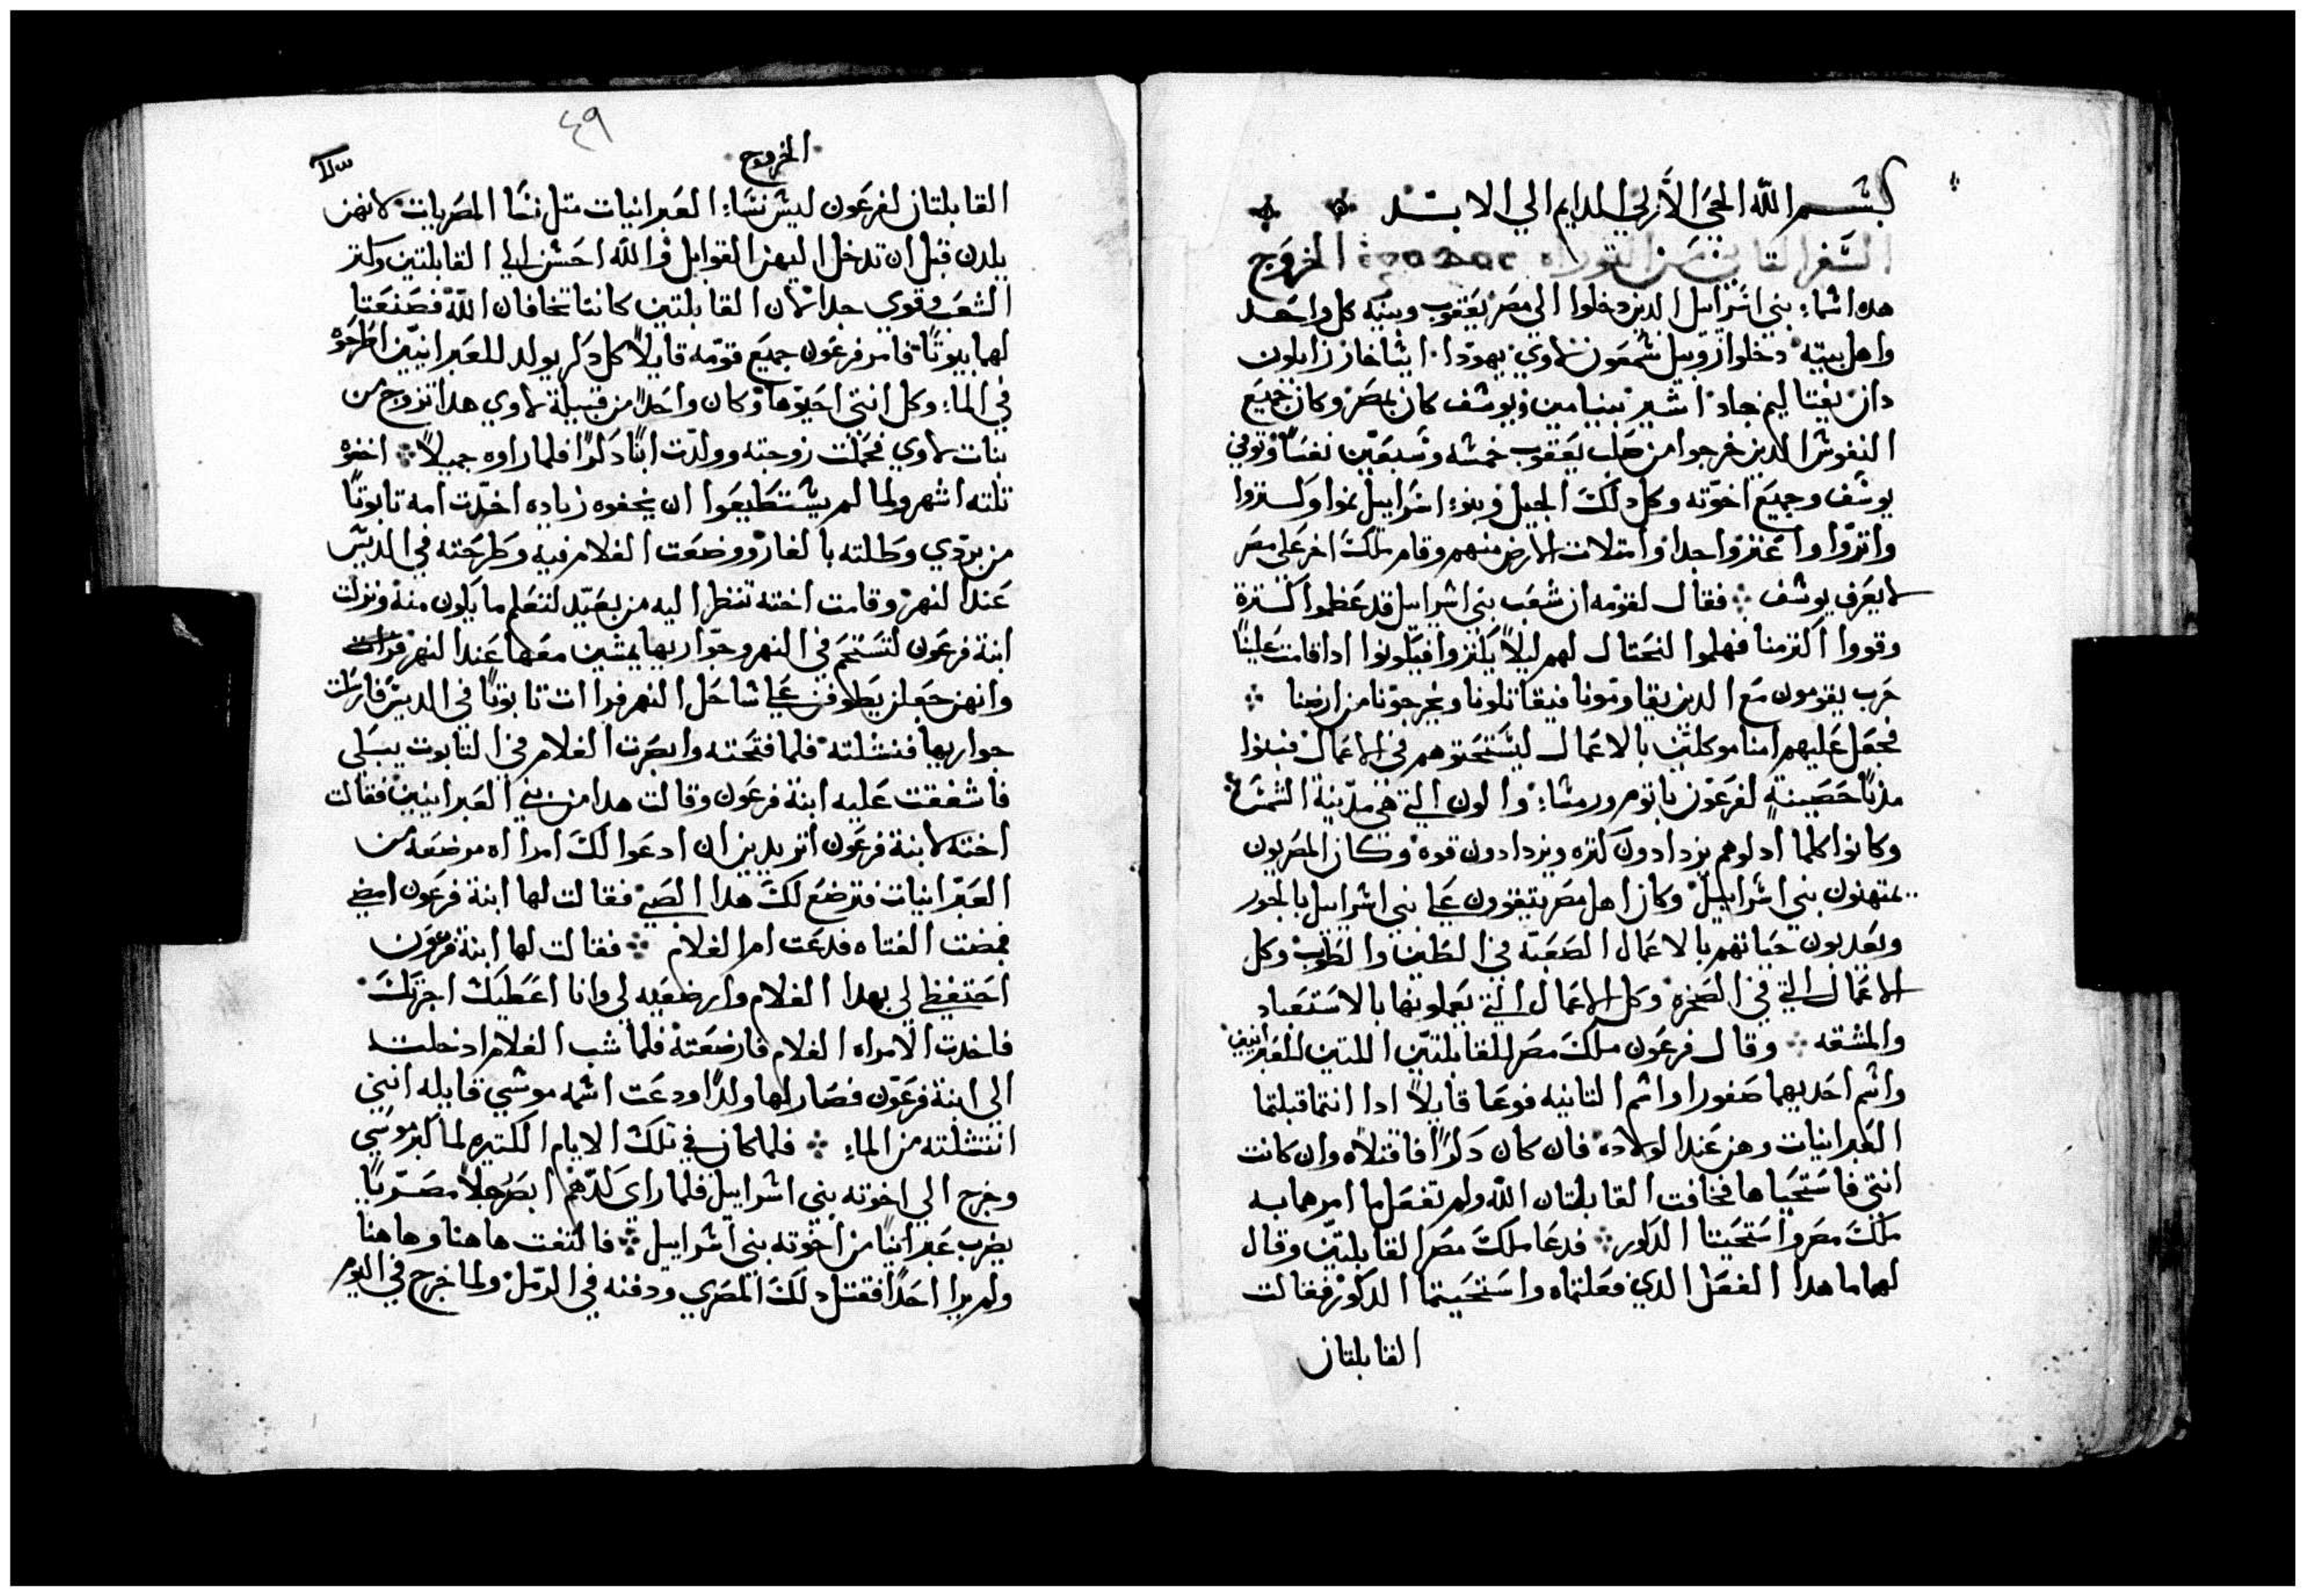 بسم الله الحي الازلي الدايم الي الابد
السفر التاني من التوراه الخروج
هده اسماء بني اسراييل الدين دخلوا الي مصر يعقوب وبنيه كل واحد
واهل بيته دخلوا روبيل شمعون لاوي يهودا ايشاخار زابلون
دان نفتاليم جاد اشير بنيامين ويوسف كان بمصر وكان جميع
النفوس الدين خرجوا من صلب يعقوب خمسه وسبعين نفسا وتوفي
يوسف وجميع اخوته وكل دلك الجيل وبنو اسراييل نموا وكتروا
واتروا واعتزوا جدا وامتلات الارض منهم وقام ملك اخر علي مصر
لا يعرف يوسف فقال لقومه ان شعب بني اسراييل قد عظموا كترة
وقووا اكتر منا فهلموا لنحتال لهم ليلا يكتروا فيكونوا ادا قامت علينا
حرب يقومون مع الدين يقاومونا فيقاتلونا ويخرجونا من ارضنا
فجعل عليهم امنا موكلين بالاعمال ليستحتوهم في الاعمال فبنوا
مدنا حصينة لفرعون باتوم ورمسا والون التي هي مدينة الشمس
وكانوا كلما ادلوهم يزدادون كتره ويزدادون قوه وكان المصريون
يمتهنون بني اسراييل وكان اهل مصر يتقوون علي بني اسراييل بالجور
ويعدبون حياتهم بالاعمال الصعبة في الطين والطوب وكل
الاعمال التي في الصخره وكل الاعمال التي يعملونها بالاستعباد
والمشقه وقال فرعون ملك مصر للقابلتين اللتين للعبرانيين
واسم احديهما صفورا واسم التانيه فوعا قايلا ادا انتما قبلتما
العبرانيات وهن عند الولاده فان كان دكرا فاقتلاه وان كانت
انتي فاستحياها فخافت القابلتان الله ولم تفعل ما امرهما به
ملك مصر واستحيتا الدكور فدعا ملك مصر القابلتين وقال
لهما ما هدا الفعل الدي فعلتماه واستحيتما الدكور فقالت
القابلتان
٤٩
الخروج
القابلتان لفرعون ليس نساء العبرانيات متل نسا المصريات لانهن
يلدن قبل ان تدخل اليهن القوابل والله احسن الي القابلتين وكتر
الشعب وقوي جدا لان القابلتين كانتا تخافان الله فصنعتا
لهما بيوتا فامر فرعون جميع قومه قايلا كل دكر يولد للعبرانيين اطرحوه
في الماء وكل انتي احيوها وكان واحدا من قبيلة لاوي هدا تزوج من
بنات لاوي فحملت زوجته وولدت ابنا دكرا فلما راوه جميلا اخفوه
تلته اشهر ولما لم يستطيعوا ان يخفوه زياده اخدت امه تابوتا
من بردي وطلته بالقار ووضعت الغلام فيه وطرحته في الديس
عند النهر وقامت اخته تنظر اليه من بعيد لتعلم ما يكون منه ونزلت
ابنة فرعون لتستحم في النهر وجواريها يمشين معها عند النهر فرات
وانهن جعلن يطوفن علي شاحل النهر فرات تابوتا في الديس فارسلت
جواريها فنشلته فلما فتحته وابصرت الغلام في التابوت يبكي
فاشفقت عليه ابنة فرعون وقالت هدا من بني العبرانيين فقالت
اخته لابنة فرعون اتريدين ان ادعوا لك امراه مرضعه من
العبرانيات فترضع لك هدا الصبي فقالت لها ابنة فرعون امضي
فمضت الفتاه فدعت ام الغلام فقالت لها ابنة فرعون
احتفظي لي بهدا الغلام وارضعيه لي وانا اعطيك اجرتك
فاخدت الامراه الغلام فارضعته فلما شب الغلام ادخلته
الي ابنة فرعون فصار لها ولدا ودعت اسمه موسي قايله انني
انتشلته من الماء فلما كان في تلك الايام الكتيره لما كبر موسي
وخرج الي اخوته بني اسراييل فلما راي كدهم ابصر رجلا مصريا
يضرب عبرانيا من اخوته بني اسراييل فالتفت هاهنا وهاهنا
ولم يرا احدا فقتل دلك المصري ودفنه في الرمل ولما خرج في اليوم